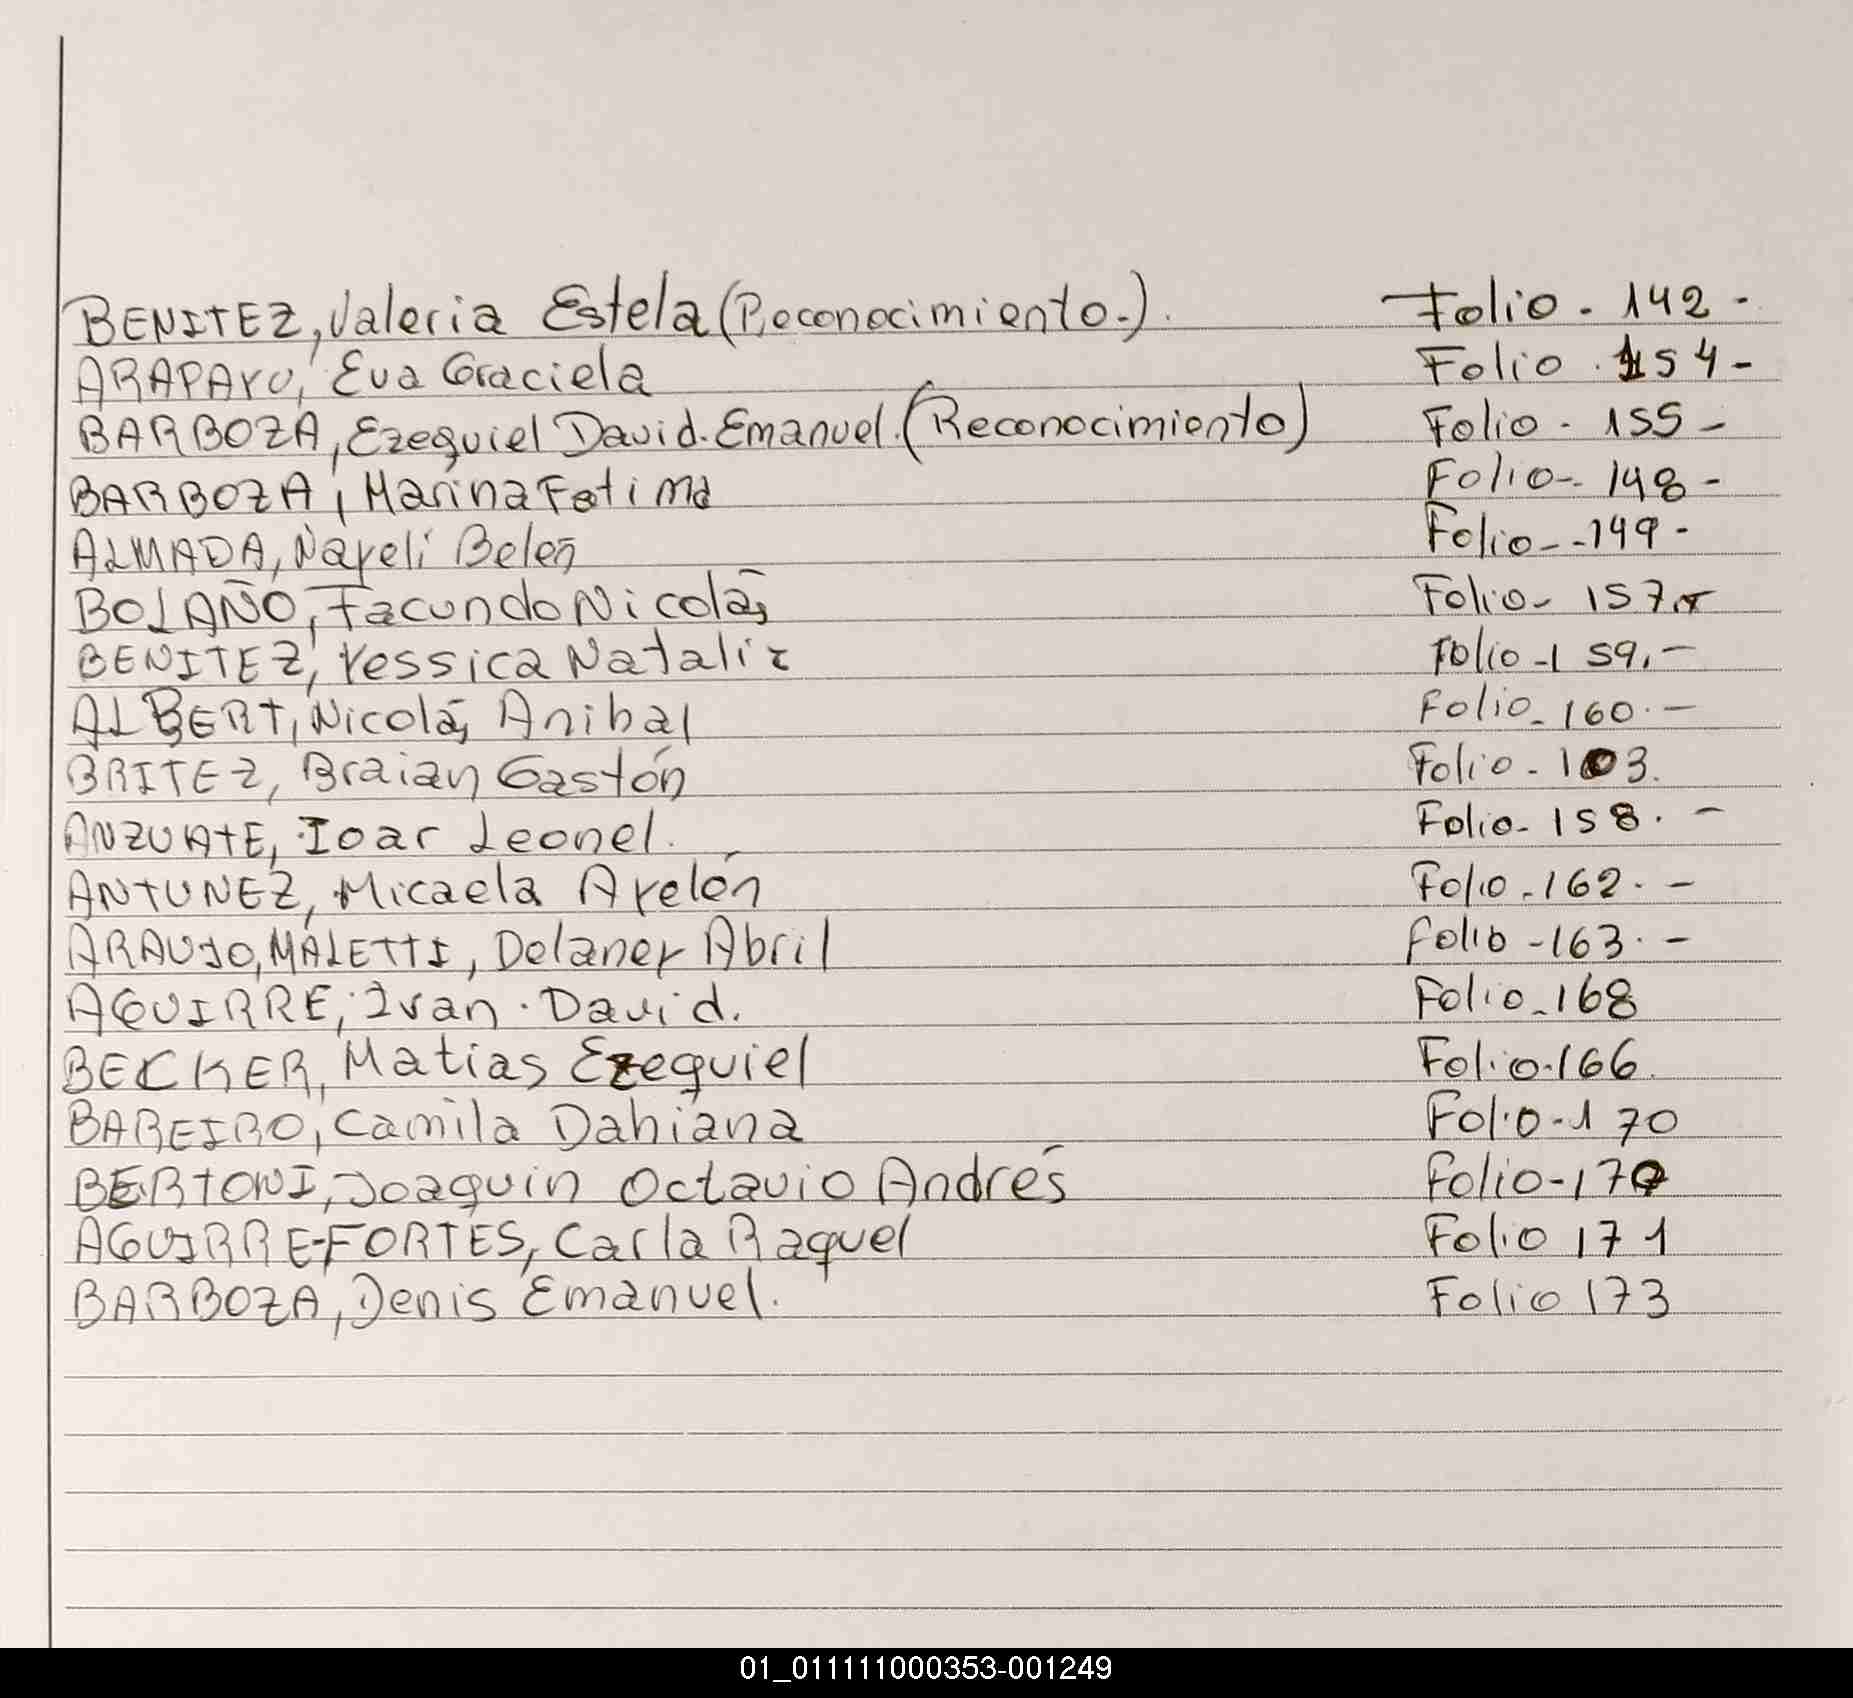 BENITEZ, Valeria Estela (Reconocimiento.). Folio - 142 -
ARAPAYO, Eva Graciela Folio . 154 -
BARBOZA, Ezequiel David. Emanuel. (Reconocimiento) Folio - 155 -
BARBOZA, Marina Fatima Folio - 148 -
ALMADA, Nayeli Belén Folio - - 149 -
BOLAÑO, Facundo Nicolás Folio - 157 -
BENITEZ, Yessica Natalia Folio - 159. -
ALBERT, Nicolás Anibal Folio - 160 . -
BRITEZ, Braian Gastón Folio - 103.
ANZUATE, Ioar Leonel. Folio - 158. -
ANTUNEZ, Micaela Ayelén Folio - 162. -
ARAUJO, MALETTI, Delaney Abril Folio - 163 . -
AGUIRRE, Ivan . David. Folio - 168
BECKER, Matias Ezequiel Folio. 166.
BAREIRO, Camila Dahiana Folio - 170
BERTONI, Joaquin Octavio Andrés Folio -
AGUIRRE-FORTES, Carla Raquel Folio 171
BARBOZA, Denis Emanuel. Folio 173
01_011111000353-001249